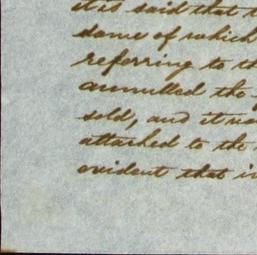 it is said that
some of which
referring to th
annulled the
sold, and it wa
attached to the
evident that in